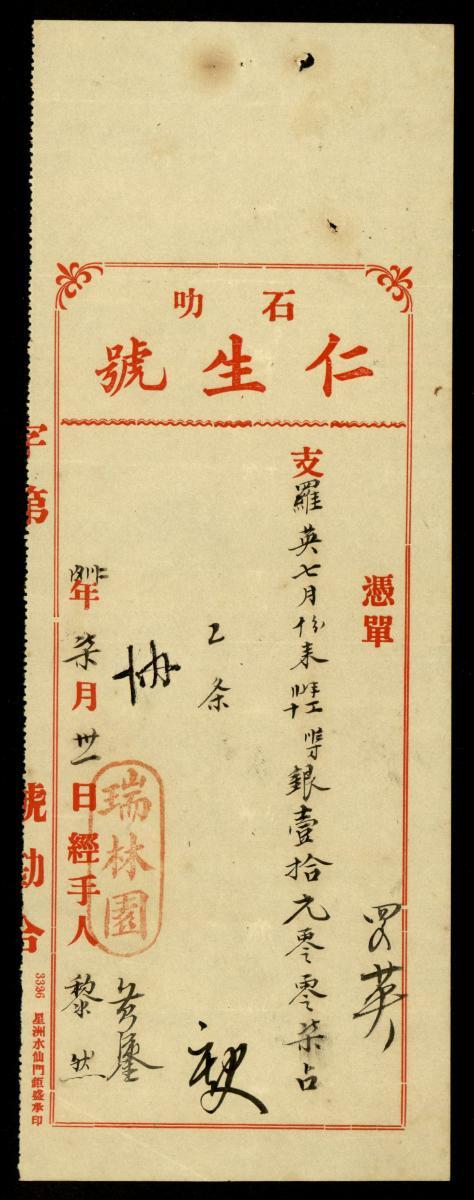 石叻
仁生號
憑單
四 英
支羅英七月份來 銀壹拾元零零柒占
工条
協
年柒月卅一日經手人
黎然
瑞林園
字第 號勘合
3336 星洲水仙門鉅盛承印